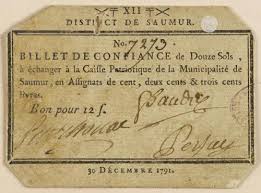 XII
DISTRICT DE SAUMUR.
No. 7273.
BILLET DE CONFIANCE de Douze Sols,
à échanger à la Caisse Patriotique de la Municipalité de
Saumur, en Assignats de cent, deux cents & trois cents
livres.
Bon pour 12 s.
30 DÉCEMBRE 1791.